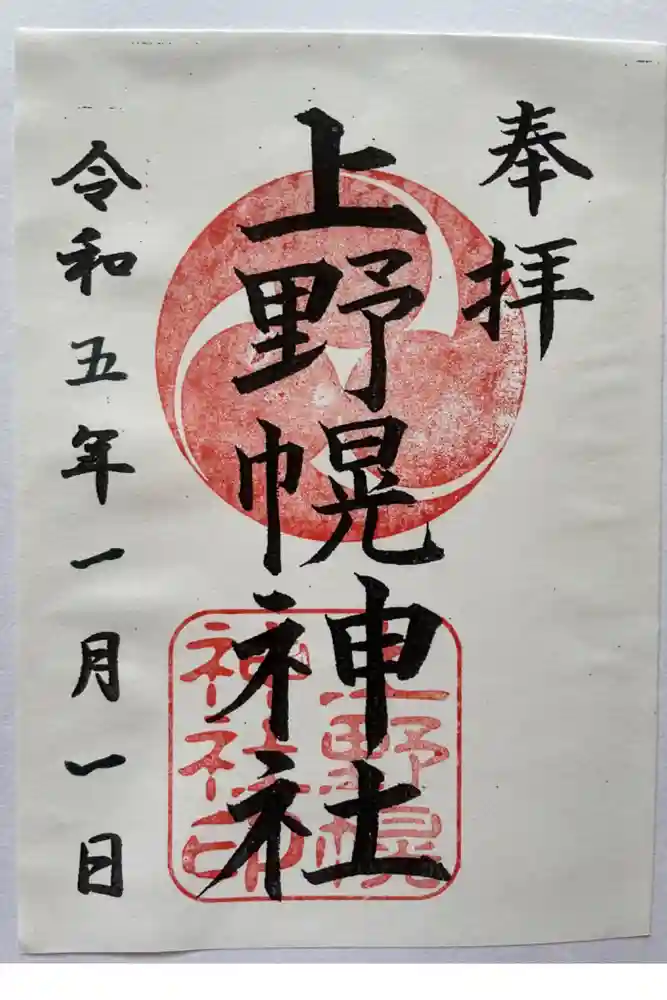 奉拝
上野幌神社
上野幌
神社印
令和五年一月一日